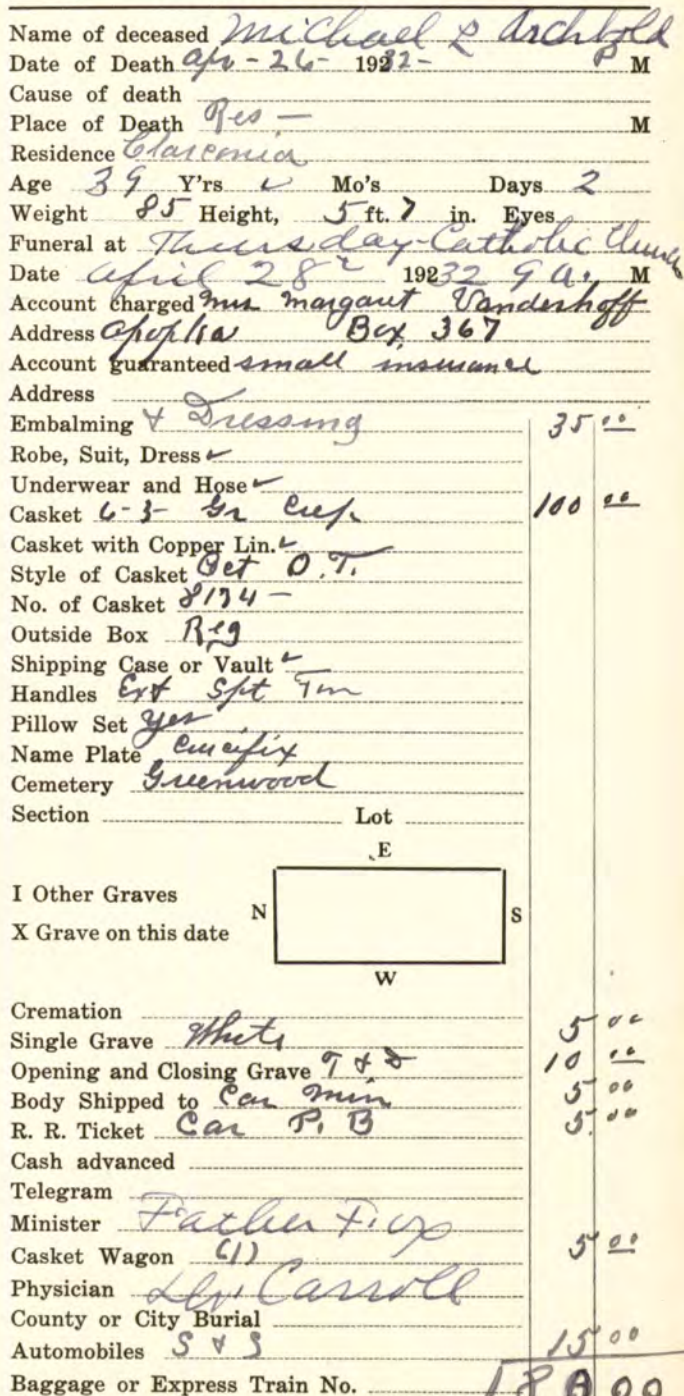 Name of deceased Michael L Archbold
Date of Death Apr - 26 - 1932 - P M
Cause of death
Place of Death Res — M
Residence Clarconia
Age 39 Y'rs ✓ Mo's Days 2
Weight 85 Height, 5 ft. 7 in. Eyes
Funeral at Thursday - Catholic Church
Date April 28" 19232 9 A. M
Account charged Mrs Margaret Vanderhoff
Address Apopka Box 367
Account guaranteed small insurance
Address
Embalming & Dressing 35 00
Robe, Suit, Dress ✓
Underwear and Hose ✓
Casket 6-3- Gr Crep 100 00
Casket with Copper Lin. ✓
Style of Casket Oct O.T.
No. of Casket 8134 -
Outside Box Reg
Shipping Case or Vault ✓
Handles Ext Tim
Pillow Set yes
Name Plate Crucifix
Cemetery Greenwood
Section Lot
E
I Other Graves
N S
X Grave on this date
W
Cremation
Single Grave White 5 00
Opening and Closing Grave T & D 10 00
Body Shipped to Car Min 5 00
R. R. Ticket Car P. B 5.00
Cash advanced
Telegram
Minister Father Fox
Casket Wagon (1) 5 00
Physician Dr. Carroll
County or City Burial
Automobiles S & S 15 00
Baggage or Express Train No. 180 00